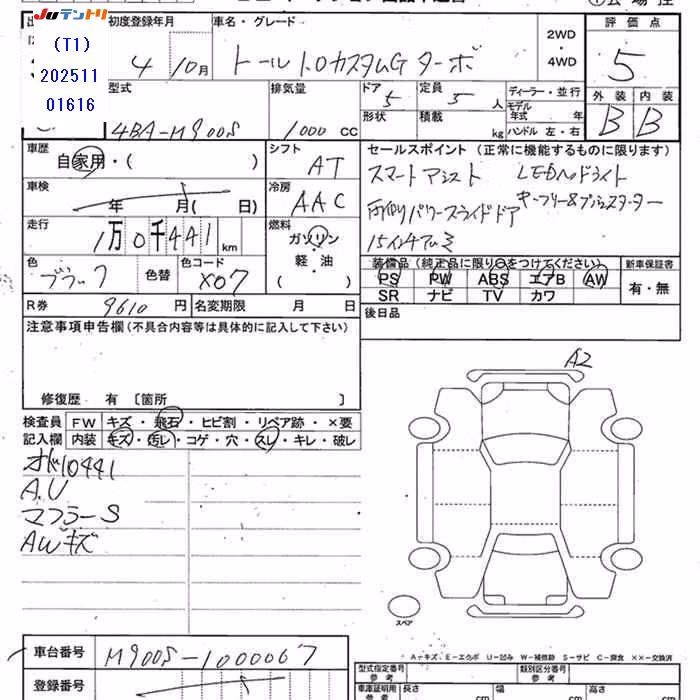 JUテントリ
(T1)
202511
01616
初度登録年月
車名・グレード
2WD
・
4WD
評価点
4 10月
トール1.0カスタムG ターボ
5
外装 内装
B B
型式
排気量
ドア 定員
ディーラー・並行
モデル年式 年
ハンドル 左・右
4BA-M900S
1000 CC
5 5人
形状 積載 kg
車歴
自家用・( )
シフト
AT
セールスポイント (正常に機能するものに限ります)
スマートアシスト LEDヘッドライト
両側パワースライドドア キーフリー&プッシュスターター
15インチアルミ
車検
年 月( 日)
冷房
AAC
走行
1万0千441km
燃料
ガソリン
軽・油
( )
色
ブラック
色替
色コード
X07
装備品 (純正品に限り○をつけてください)
PS PW ABS エアB AW
SR ナビ TV カワ
新車保証書
有・無
R券 9610円 名変期限 月 日
後日品
注意事項申告欄 (不具合内容等は具体的に記入して下さい)
修復歴 有 〔箇所 〕
A2
検査員
記入欄
FW キズ・飛石・ヒビ割・リペア跡・×要
内装 キズ・汚レ・コゲ・穴・スレ・キレ・破レ
オド10441
A.U
マフラーS
AWキズ
スペア
A-キズ E-エクボ U-凹み W-補修跡 S-サビ C-腐食 ××-交換済
車台番号 M900S-1000067
登録番号
型式指定番号
参考
類別区分番号
参考
車庫証明用
参考
長さ cm 幅 cm 高さ cm